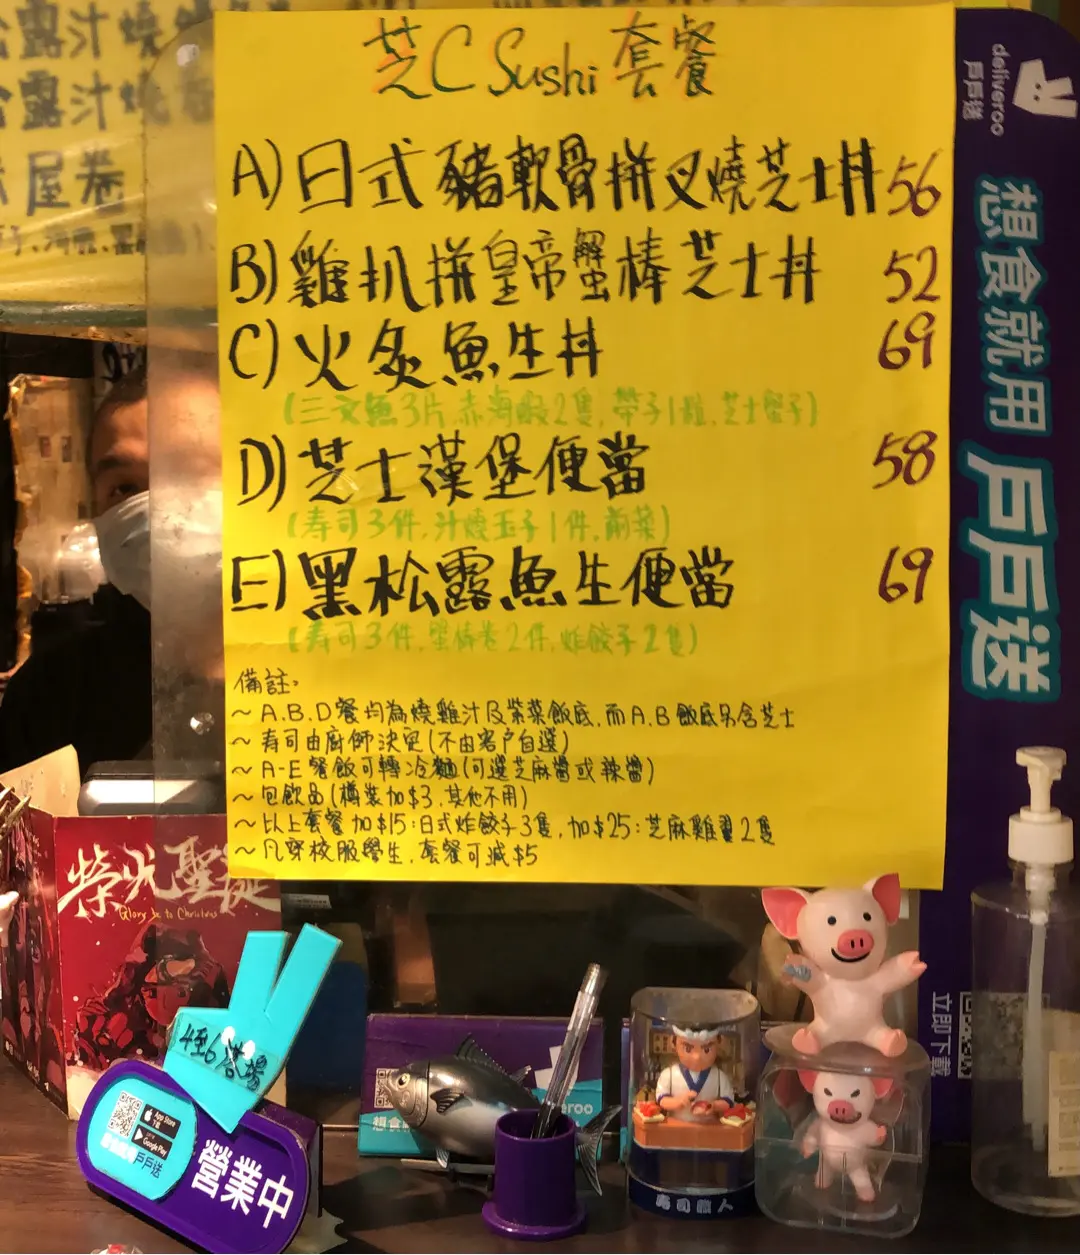 芝C Sushi 套餐
A) 日式豬軟骨拼叉燒芝士丼 56
B) 雞扒拼皇帝蟹棒芝士丼 52
C) 火炙魚生丼 69
(三文魚3片,赤海蝦2隻,帶子1粒,芝士蟹子)
D) 芝士漢堡便當 58
(寿司3件,汁燒玉子1件,前菜)
E) 黑松露魚生便當 69
(寿司3件,蟹棒卷2件,炸餃子2隻)
備註:
~ A.B.D餐均為燒雞汁及紫菜飯底,而A.B飯底另含芝士
~ 寿司由廚師決定(不由客户自選)
~ A-E餐飯可轉冷麵(可選芝麻醬或辣醬)
~ 包飲品(樽裝加$3,其他不用)
~ 以上套餐加$15:日式炸餃子3隻,加$25:芝麻雞翼2隻
~ 凡穿校服學生,套餐可減$5
露汁燒
露汁燒
屋卷
deliveroo
戶戶送
想食就用
戶戶送
立即下載
榮光聖誕
Glory be to Christmas
4至6落場
App Store
下載
Google Play
戶戶送
營業中
想食
eroo
寿司職人